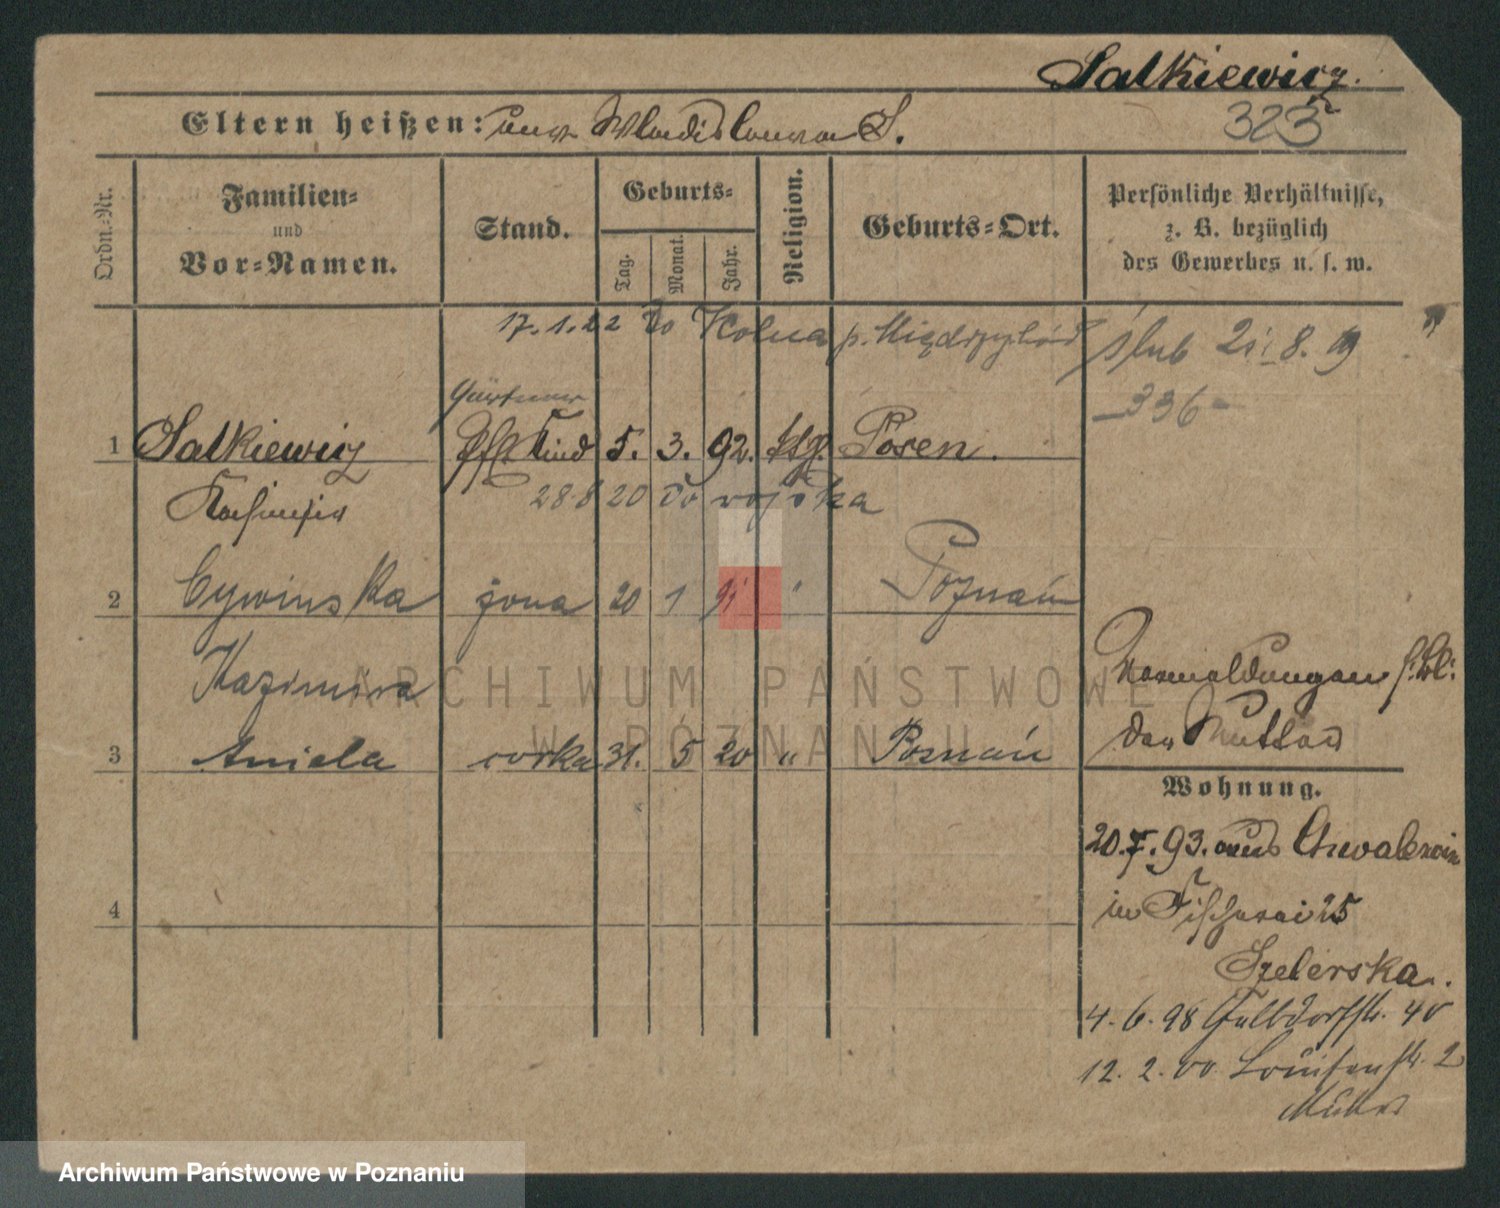 Salkiewicz.
Eltern heißen: unv. Wladislawa S.
325
Ordn.-Nr.
Familien- und Vor-Namen.
Stand.
Geburts-
Tag. Monat. Jahr.
Religion.
Geburts-Ort.
Persönliche Verhältnisse,
z. B. bezüglich
des Gewerbes u. s. w.
17.1.22 do Kolna p. Międzychód
ślub 21.8.19
336
Gärtner
1 Salkiewicz Pfl. Kind 5. 3. 92. ktg. Posen.
Kasimir
28 8 20 do wojska
2 Cywinska żona 20 1 Poznań
Kazimiera
3 Aniela córka 31. 5 20 " Poznań
4
Anmeldungen s. Bl.
der Mutter
Wohnung.
20.7.93. aus
in Fischerei 25
Szelerska.
4.6.98 Halbdorfstr. 40
12.2.00. Louisenstr. 2
Mutter
ARCHIWUM PAŃSTWOWE
W POZNANIU
Archiwum Państwowe w Poznaniu